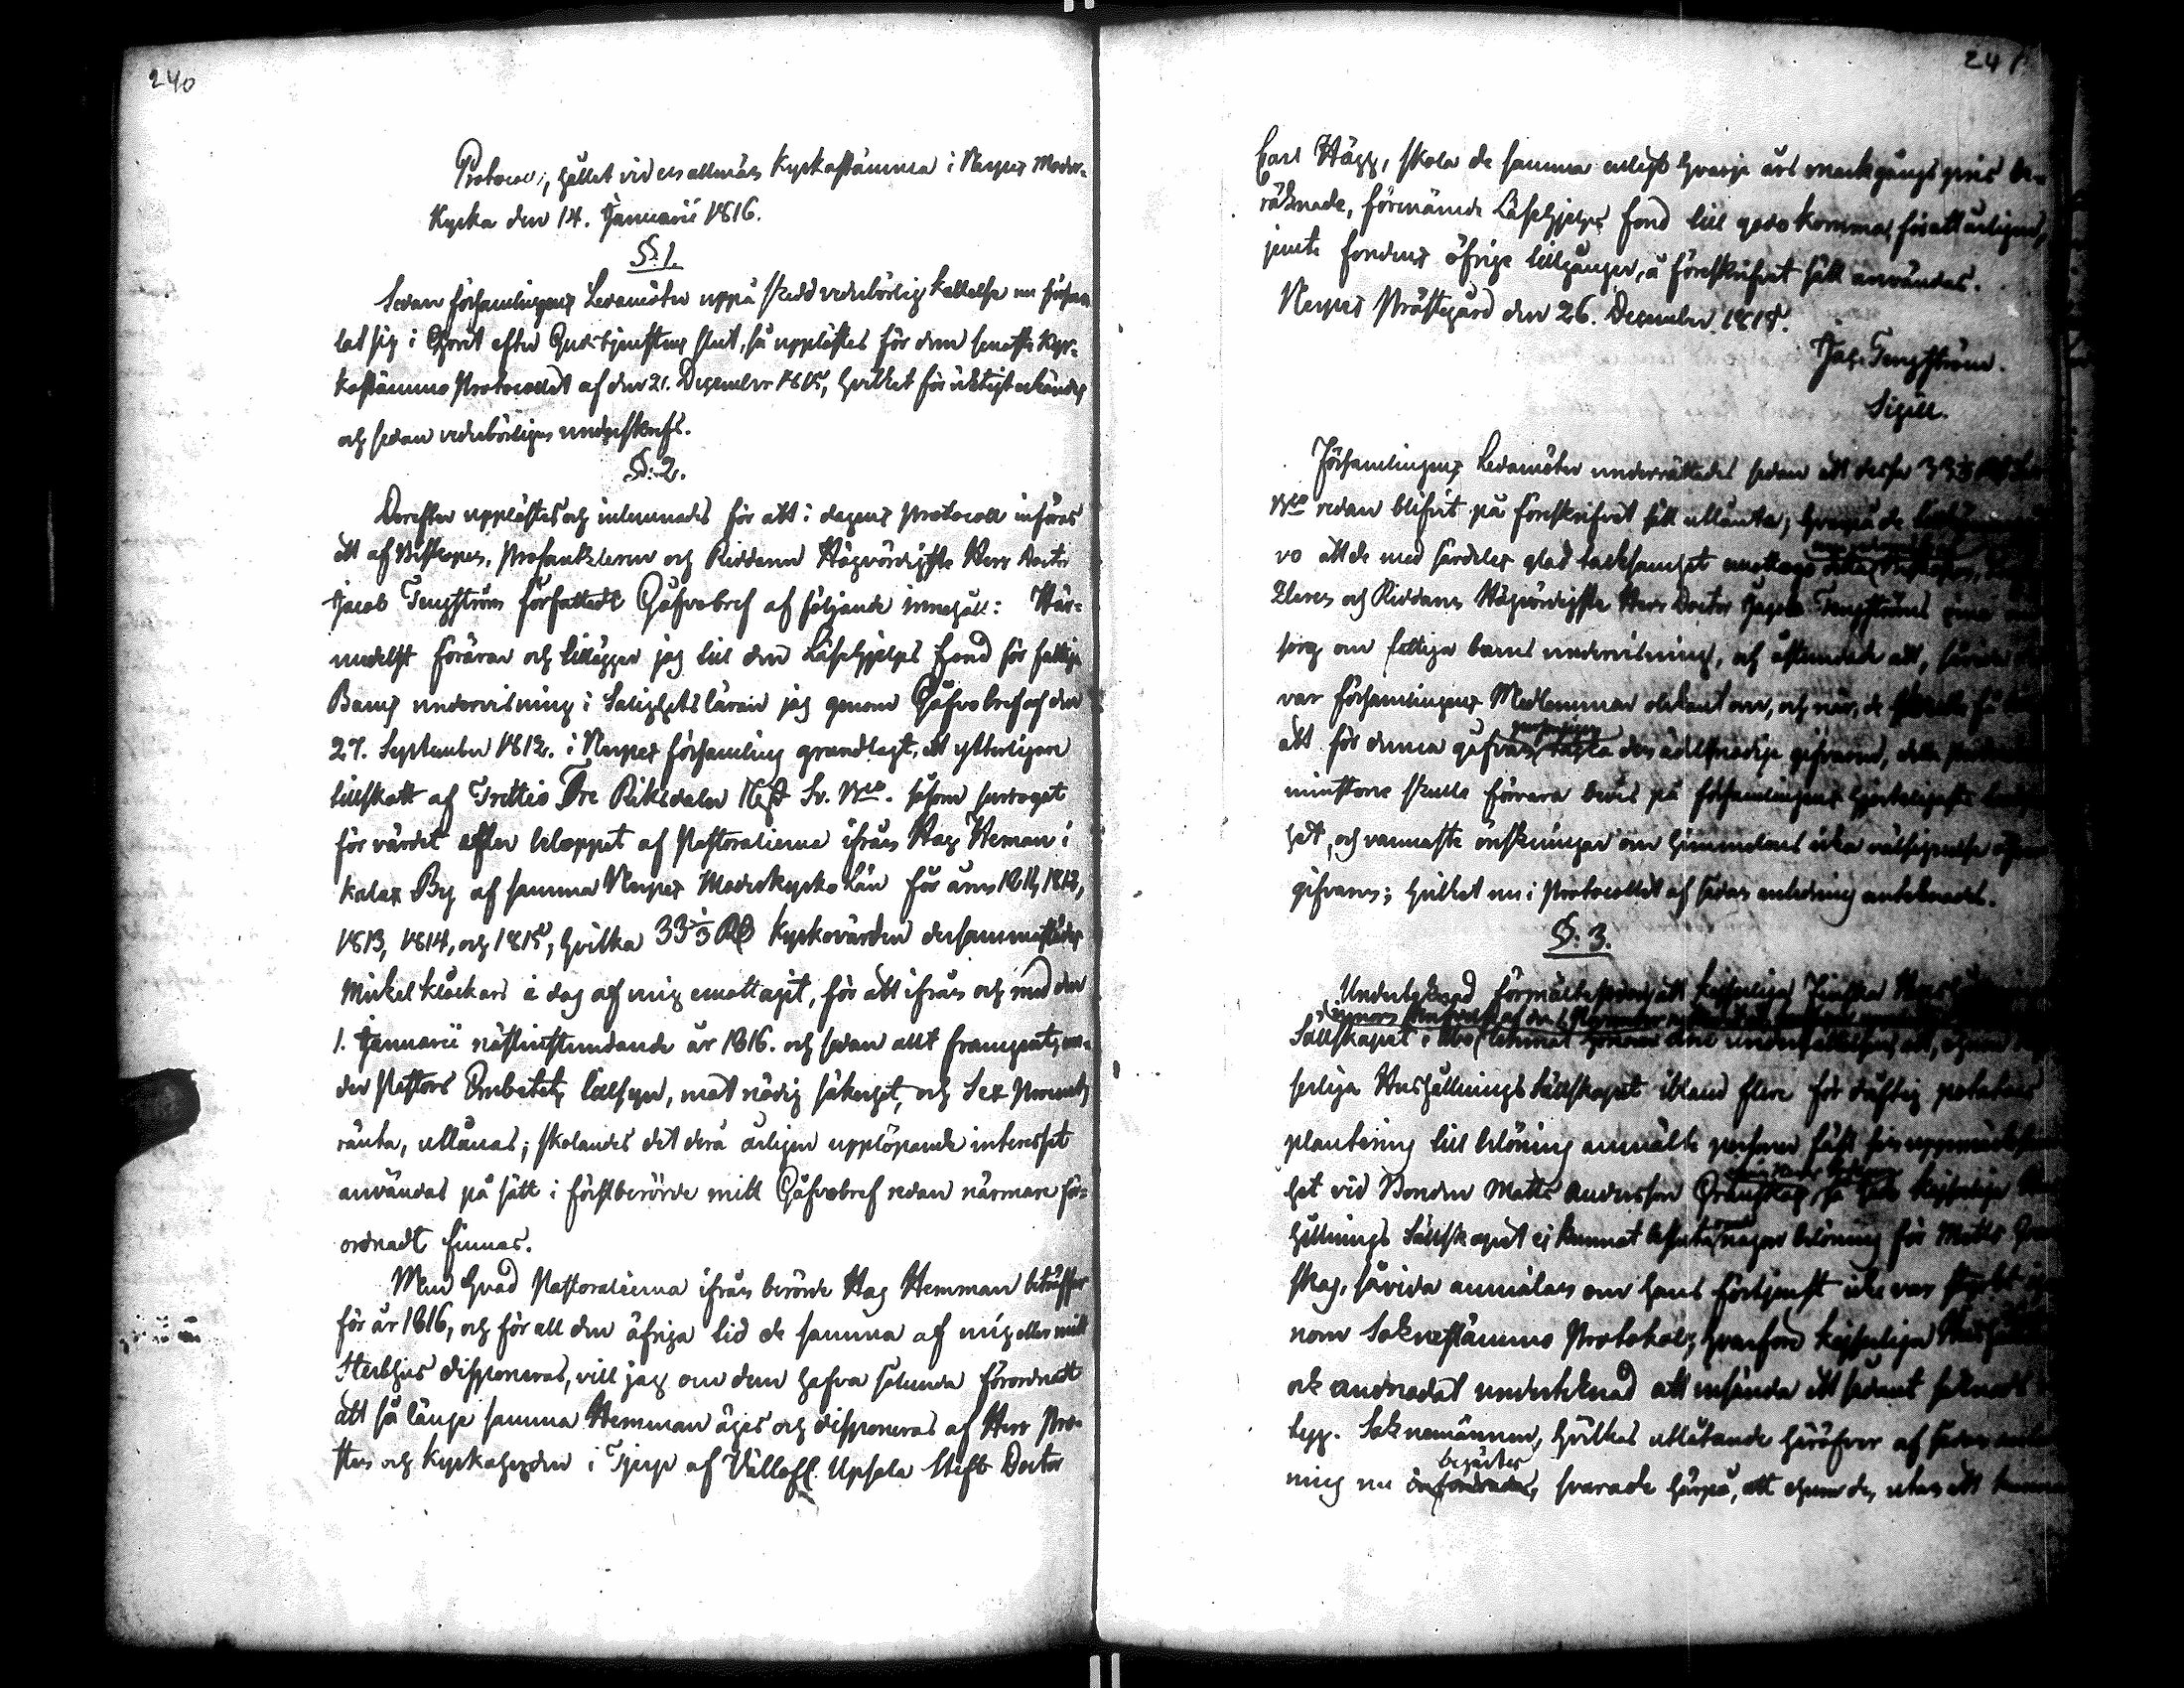 240
Protocoll, hållet vid en allmän Kyrkostämma i Nerpes Moder-
Kyrka den 14. Januarii 1816.
§. 1.
Sedan församlingens Ledamöter uppå skedd vederbörlig kallelse nu försam-
lat sig i Choret efter Gudstjenstens slut, så upplästes för dem senaste Kyr-
kostämmo Protocollet af den 21. December 1815, hvilket för riktigt erkändes
och sedan vederbörligen underskrefs.
§. 2.
Derefter upplästes och inlemnades för att i dagens Protocoll införas
ett af Biskopen, Prokanzleren och Riddaren Högvördigste Herr Doctor
Jacob Tengström författadt Gåfvobref af följande innehåll: Här-
medelst förärar och tillägger jag till den Läsehjelps Fond för fattiga
Barns undervisning i Salighetsläran jag genom Gåfvobref af den
27. September 1812. i Nerpes församling grundlagt, ett ytterligare
tillskott af Trettio Tre Riksdaler 16 sk Sv. Bco. såsom surrogat
för värdet efter beloppet af Pastoralierna ifrån Hag Heman i
Kalax By af samma Nerpes Moderkyrko Län för åren 1811, 1812,
1813, 1814, och 1815, hvilka 33 1/3 Rd Kyrkovärden dersammastädes
Mickel Klockars i dag af mig emottagit, för att ifrån och med den
1. Januarii nästinstundande år 1816. och sedan allt framgent, un-
der Pastors Embetets tillsyn, mot nödig säkerhet, och Sex Procents
ränta, utlånas; skolandes det derå årligen upplöpande interesset
användas på sätt i förstberörde mitt Gåfvobref redan närmare för-
ordnadt finnes.
Men hvad Pastoralierna ifrån berörde Hag Hemman beträffar
för år 1816, och för all den öfriga tid de samma af mig eller mitt
Sterbhus disponeras, vill jag om dem hafva sålunda förordnat
att så länge samma Hemman äges och disponeras af Herr Pro-
sten och Kyrkoherden i Tjerp af Upsala Stift Doctor
241
Carl Hägg, skola de samma enligt hvarje års markgångs pris be-
räknade, förenämde Läsehjelps Fond till godo komma, för att årligen,
jemte fondens öfrige tillgångar, å föreskrifvet sätt användas.
Nerpes Prästgård den 26. December 1815.
Jac. Tengström.
Sigill.
Församlingens Ledamöter underrättades sedan att dessa 33 1/3
Bco redan blifvit på föreskrifvet sätt utlånta; hvarpå de
vo att de med särdeles glad tacksamhet emottago detta
zleren och Riddaren Högvördigste Herr Doctor Jacob Tengströms
sorg om fattiga barns undervisning, och åstundade att, såvida
var församlingens Medlemmar obekant om, och när, de skulle få
att för denna gåfvan personligen tacka den ädelmodige gifvaren, detta
minstone skulle förvara bevis på församlingens hjerteligaste
het, och varmaste önskningar om himmelens rika välsignelse öfver
gifvaren; hvilket nu i Protocollet af sådan anledning antecknades.
§. 3.
Undertecknad förmälte sedan att Kejserliga Finska
Sällskapet i Åbo
serliga Hushållnings Sällskapet ibland flere för
plantering till belöning anmälte personer
het vid Bonden Matts Andersson Granskog, så
hållnings Sällskapet ej kunnat besluta någon belöning för Matts
skog, såvida anmälan om hans förtjenst icke var
nom Sokenstämmo Protokoll; hvarföre Kejserliga
ock anmodat undertecknad att insända ett sådant
legg. Soknemännen, hvilkas utlåtande häröfver af sådan
ning nu begärtes, svarade härpå, att ehuru de, utan att